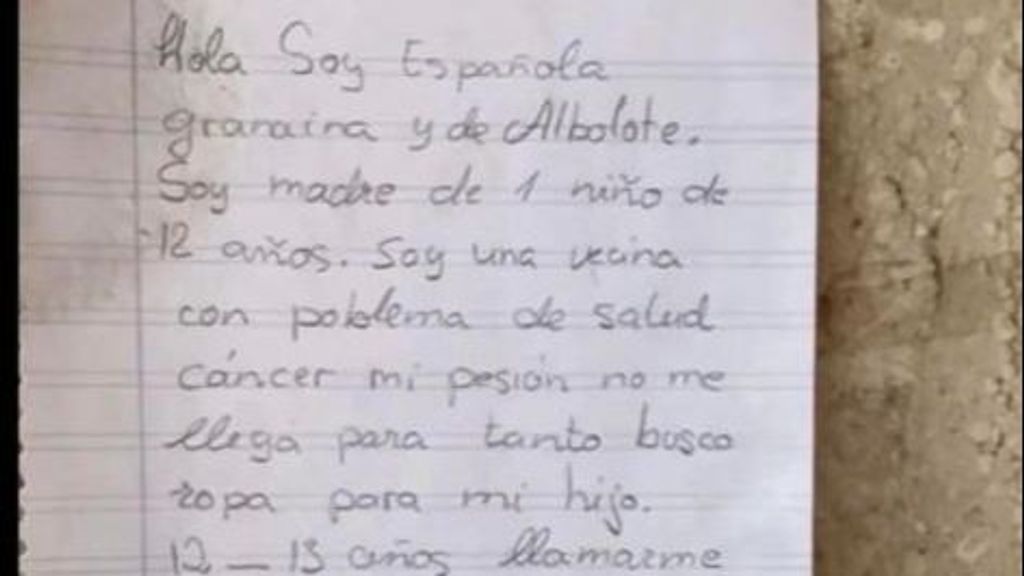 Hola Soy Española
granaina y de Albolote.
Soy madre de 1 niño de
12 años. Soy una vecina
con poblema de salud
cáncer mi pesión no me
llega para tanto busco
ropa para mi hijo.
12 — 13 años llamarme